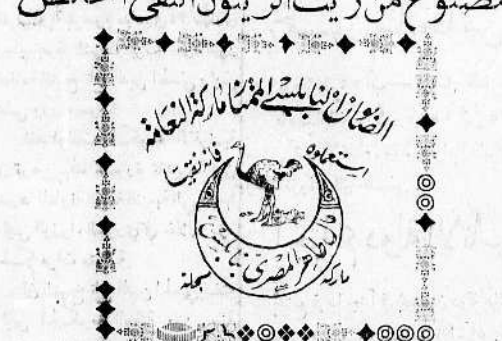 مصنوع من زيت الزيتون النقي الخالص
الصابون النابلسي الممتاز ماركة النعامة
استعملوه
فانه نقي
طاهر المصري نابلس
ماركه
مسجلة